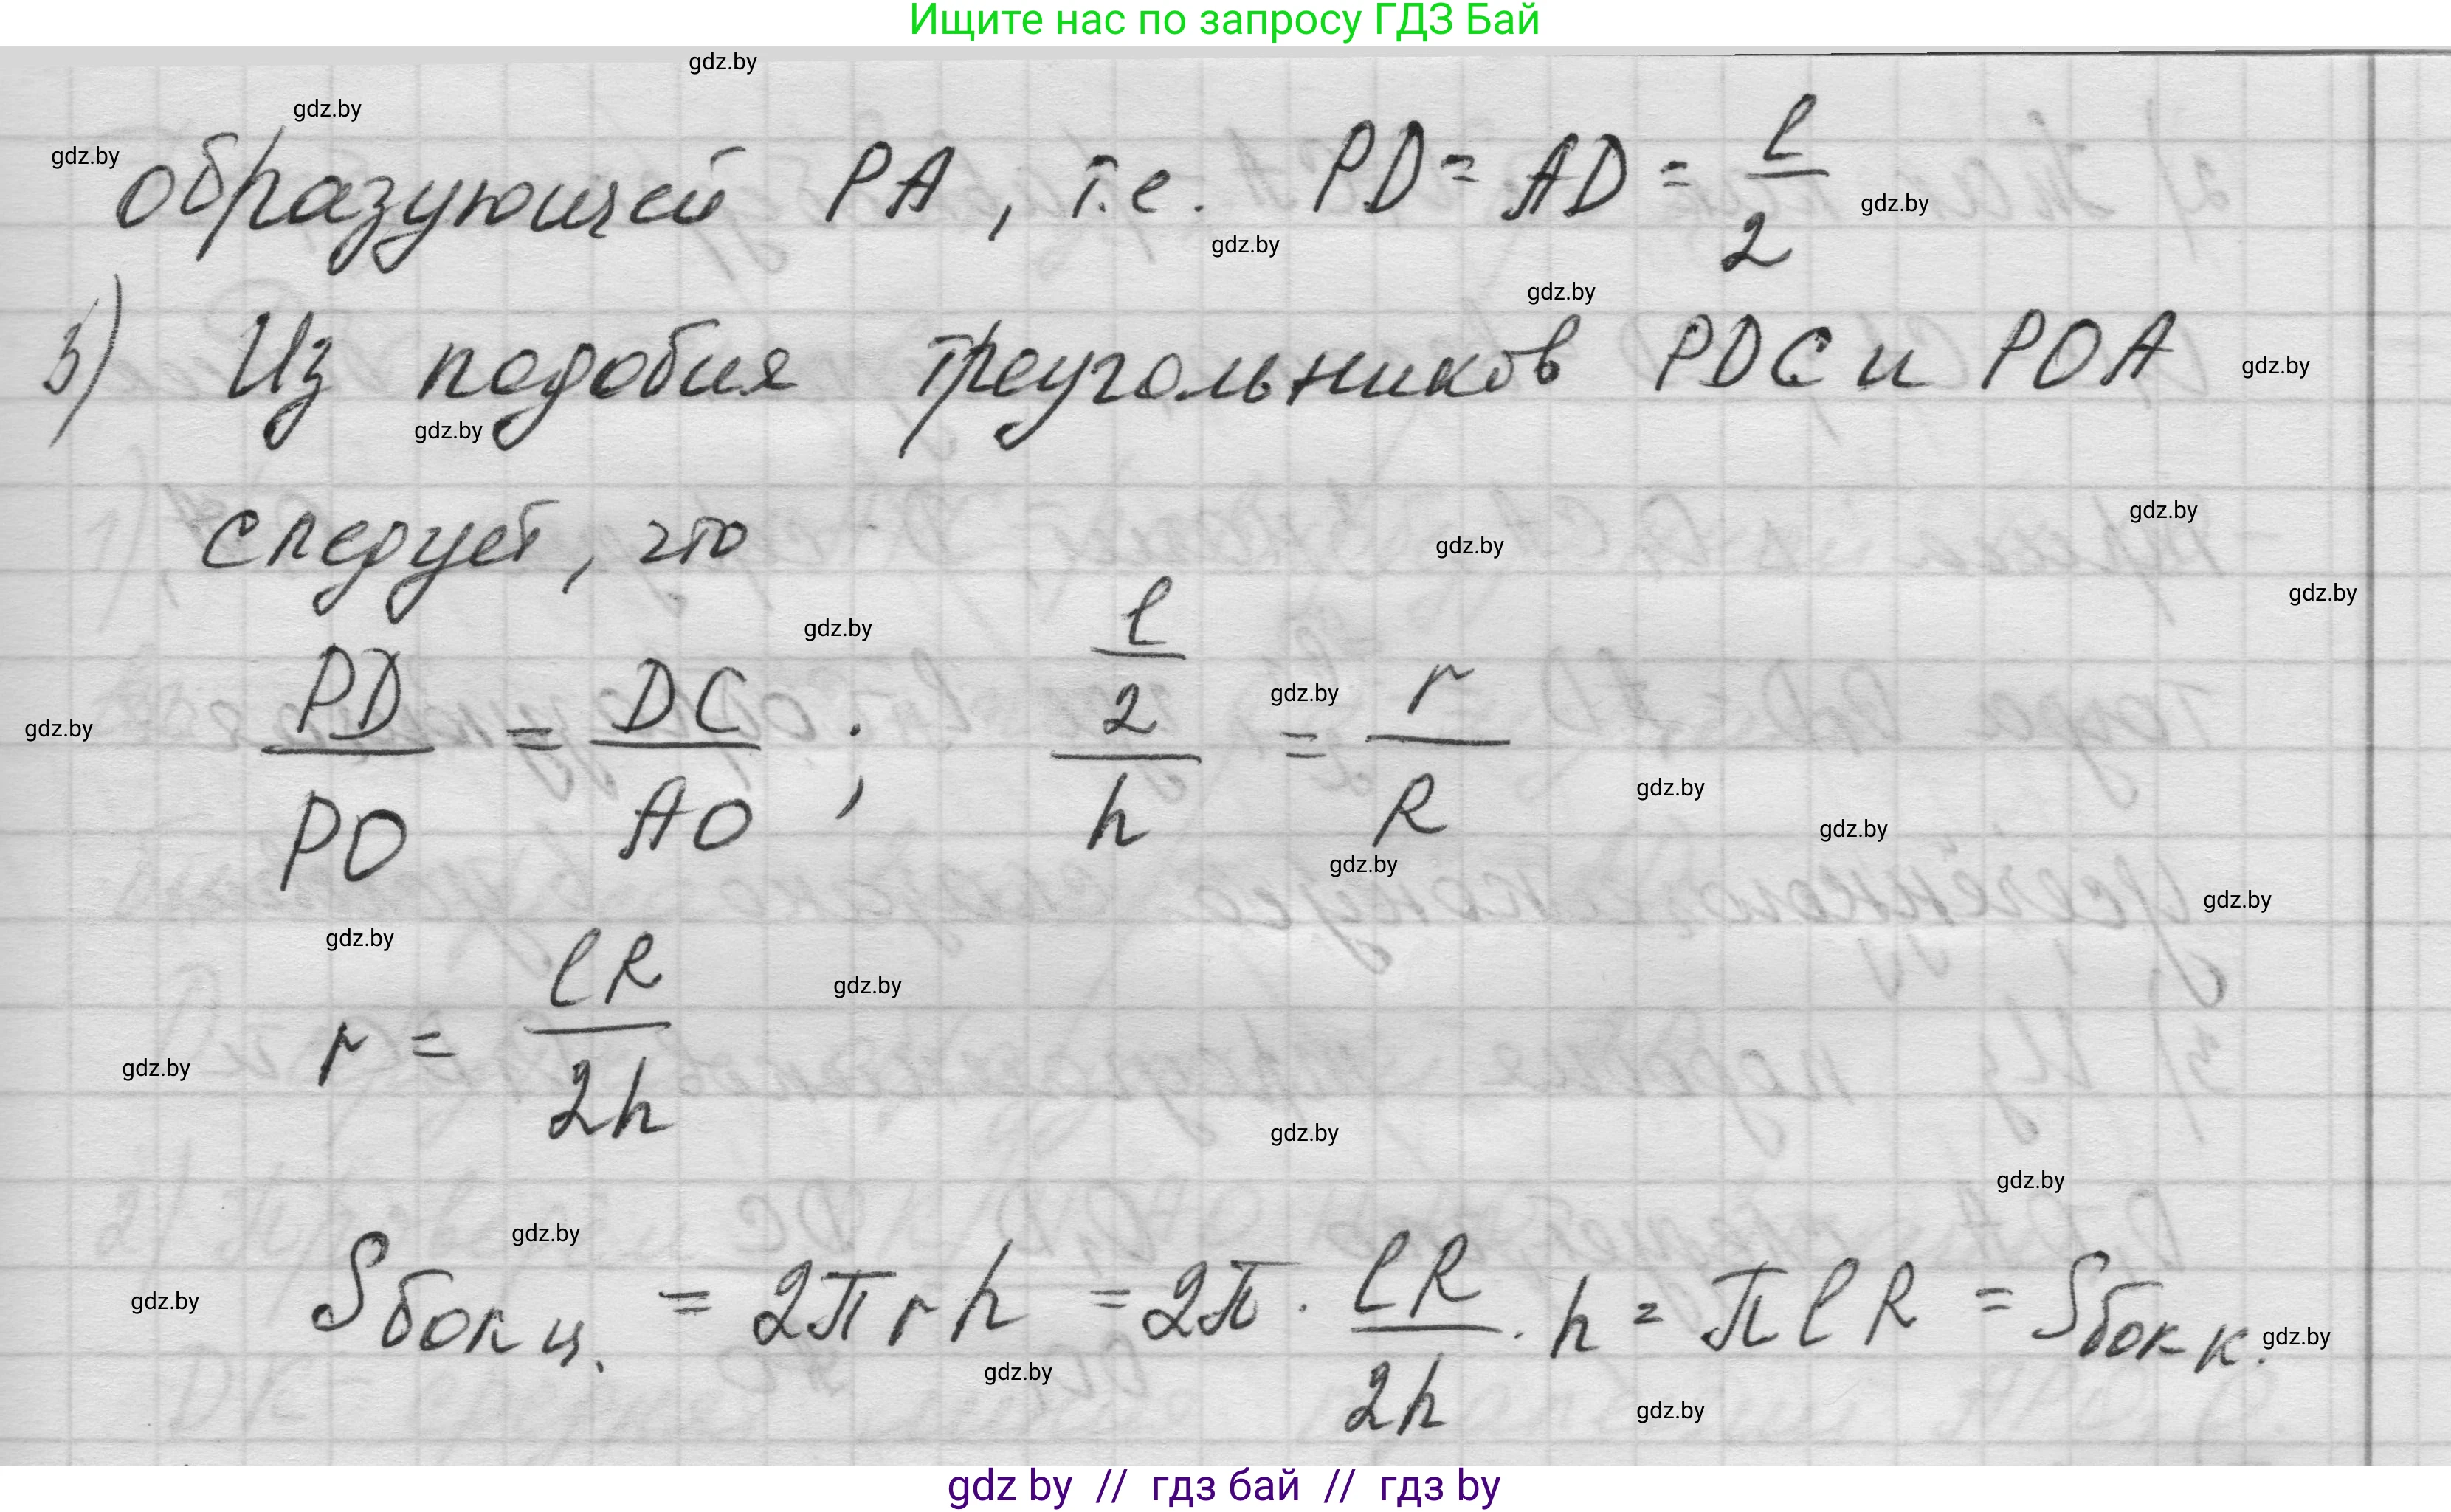 Ищите нас по запросу ГДЗ Бай
gdz.by
gdz.by
gdz.by
образующей PA, т.е. PD = AD = l/2
gdz.by
gdz.by
gdz.by
3) Из подобия треугольников PDC и POA
gdz.by
gdz.by
следует, что
gdz.by
gdz.by
gdz.by
gdz.by
PD/PO = DC/AO ; (l/2)/h = r/R
gdz.by
gdz.by
gdz.by
gdz.by
gdz.by
gdz.by
gdz.by
r = lR/2h
gdz.by
gdz.by
gdz.by
gdz.by
gdz.by
Sбок ц. = 2πrh = 2π · lR/2h · h = πlR = Sбок к.
gdz.by
gdz.by
gdz.by
gdz.by
gdz by // гдз бай // гдз by